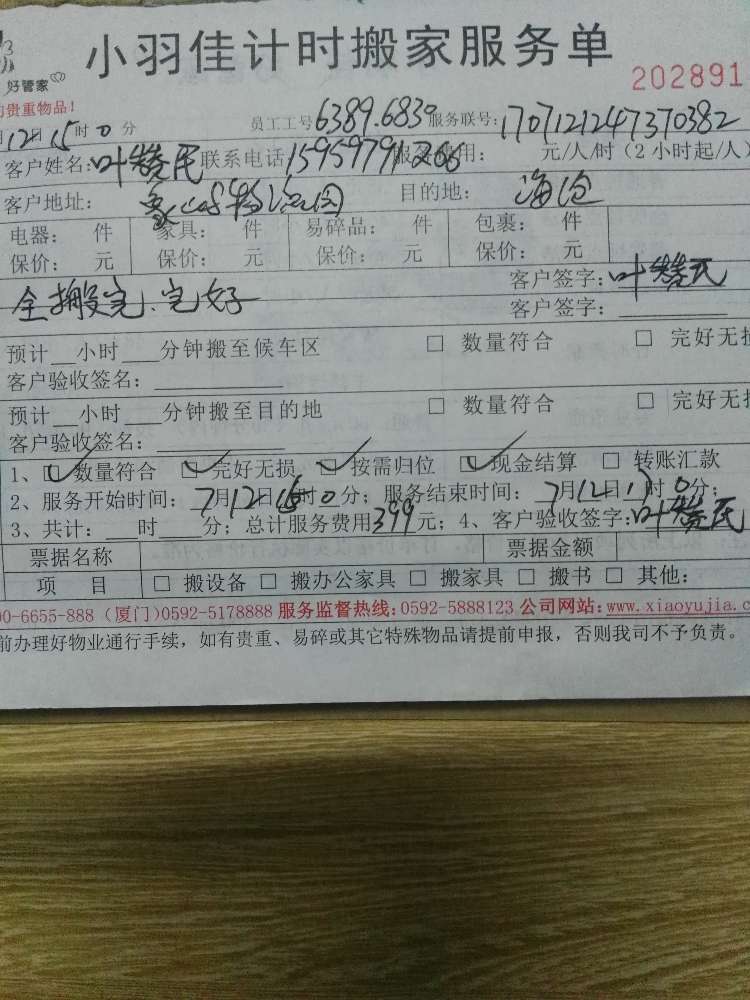 小羽佳计时搬家服务单
好管家
202891
贵重物品!
月12日15时0分 员工工号6389.6830服务联号:1707121247370382
客户姓名:叶赞民 联系电话 服务费用: 元/人/时(2小时起/人)
客户地址: 目的地:海沧
电器: 件 家具: 件 易碎品: 件 包裹: 件
保价: 元 保价: 元 保价: 元 保价: 元
客户签字:叶赞民
全搬完、完好
客户签字:
预计__小时___分钟搬至候车区 □ 数量符合 □ 完好无损
客户验收签名:
预计__小时___分钟搬至目的地 □ 数量符合 □ 完好无损
客户验收签名:
1、☑数量符合 ☑完好无损 ☑按需归位 ☑现金结算 □ 转账汇款
2、服务开始时间:7月12日15时0分;服务结束时间:7月12日17时0分;
3、共计:___时___分;总计服务费用399元;4、客户验收签字:叶赞民
票据名称 票据金额
项 目 □ 搬设备 □ 搬办公家具 □ 搬家具 □ 搬书 □ 其他:
00-6655-888(厦门)0592-5178888 服务监督热线:0592-5888123 公司网站:www.xiaoyujia.c
前办理好物业通行手续,如有贵重、易碎或其它特殊物品请提前申报,否则我司不予负责。